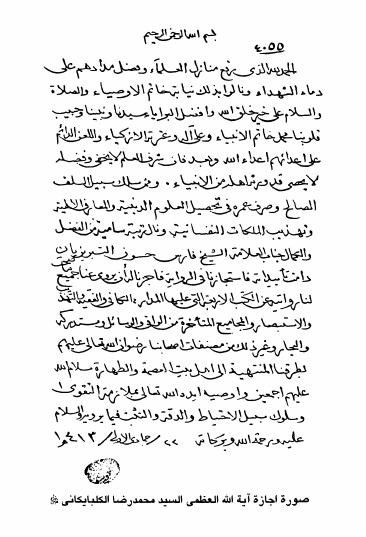 بسم الله الرحمن الرحيم
٤٠٥٥
الحمد لله الذي رفع منازل العلماء وفضل مدادهم على
دماء الشهداء ونالوا بذلك نيابة خاتم الاوصياء والصلاة
والسلام على خير خلق الله وافضل البرايا سيدنا ونبينا وحبيب
قلوبنا محمد خاتم الانبياء وعلى آله وعترته الازكياء واللعن الدائم
على اعدائهم اعداء الله وبعد فان شرف العلم لا يخفى وفضله
لا يحصى قد ورثه اهله من الانبياء. وممن سلك سبيل السلف
الصالح وصرف عمره في تحصيل العلوم الدينية والمعارف الالهية
وتهذيب الملكات النفسانية ونال مرتبة سامية من الفضل
والكمال جناب العلامة الشيخ فارس حسون التبريزيان
دامت تأييداته فاستجازنا في الرواية فاجزناه أن يروي عنا جميع
لنا روايته عن الكتب الاربعة التي عليها المدار الكافي والفقيه والتهذيب
والاستبصار والمجاميع المتأخرة من الوافي والوسائل ومستدركه
والبحار وغير ذلك من مصنفات اصحابنا رضوان الله تعالى عليهم
بطرقنا المنتهية الى اهل بيت العصمة والطهارة سلام الله
عليهم اجمعين واوصيه ايده الله تعالى بملازمة التقوى
وسلوك سبيل الاحتياط والدقة والتثبت فيما يرويه والسلام
عليه ورحمة الله وبركاته ٢٢ / جمادى الاولى / ١٤١٣ ه
صورة اجازة آية الله العظمى السيد محمدرضا الكلبايكانى